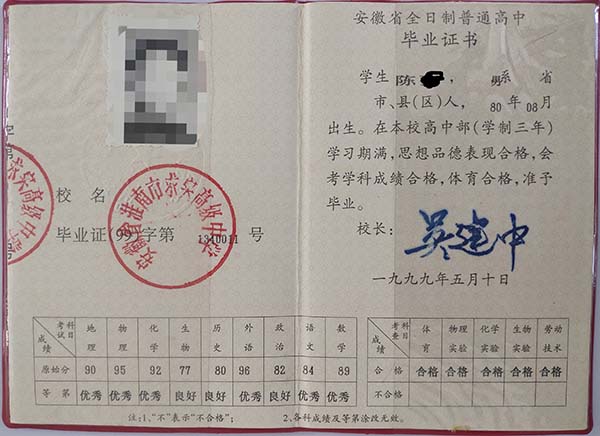 校名
毕业证(99)字第 1340011 号
安徽省淮南市蔡家高级中学
安徽省全日制普通高中
毕业证书
学生 陈 , 男系 省
市、县(区)人, 80 年 08 月
出生。在本校高中部(学制三年)
学习期满,思想品德表现合格,会
考学科成绩合格,体育合格,准予
毕业。
校长: 吴建中
一九九九年五月十日
成绩 考试科目 地理 物理 化学 生物 历史 外语 政治 语文 数学
原始分 90 95 92 77 80 96 82 84 89
等第 优秀 优秀 优秀 良好 良好 优秀 良好 良好 优秀
成绩 考查科目 体育 物理实验 化学实验 生物实验 劳动技术
合格 合格 合格 合格 合格 合格
不合格
注:1、“不”表示“不合格”; 2、各科成绩及等第涂改无效。